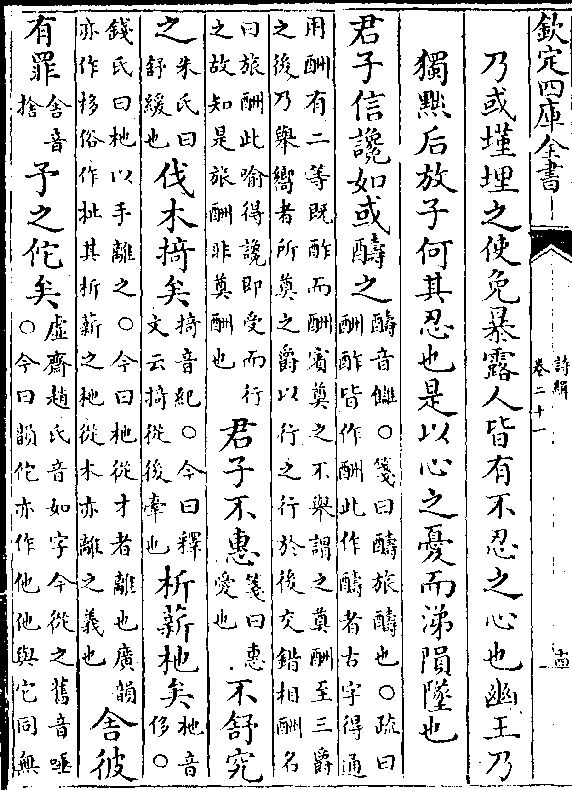 欽定四庫全書
詩緝
卷二十一
乃或墐埋之使免暴露人皆有不忍之心也幽王乃
獨點后放子何其忍也是以心之憂而涕隕墜也
君子信讒如或醻之
醻音讎○箋曰醻旅醻也○疏曰
酬酢皆作酬此作醻者古字得通
用酬有二等既酢而酬賓奠之不舉謂之奠酬至三爵
之後乃舉嚮者所奠之爵以行之行於後交錯相酬名
曰旅酬此喻得讒即受而行
之故知是旅酬非奠酬也
君子不惠
箋曰惠
愛也
不舒究
之
朱氏曰
舒緩也
伐木掎矣
掎音紀○今曰釋
文云掎從後牽也
析薪杝矣
杝音
侈○
錢氏曰杝以手離之○今曰杝從才者離也廣韻
亦作移俗作扯其析薪之杝從木亦離之義也
舍彼
有罪
舍音
捨
予之佗矣
虛齋趙氏音如字今從之舊音唾
○今曰韻佗亦作他他與它同無